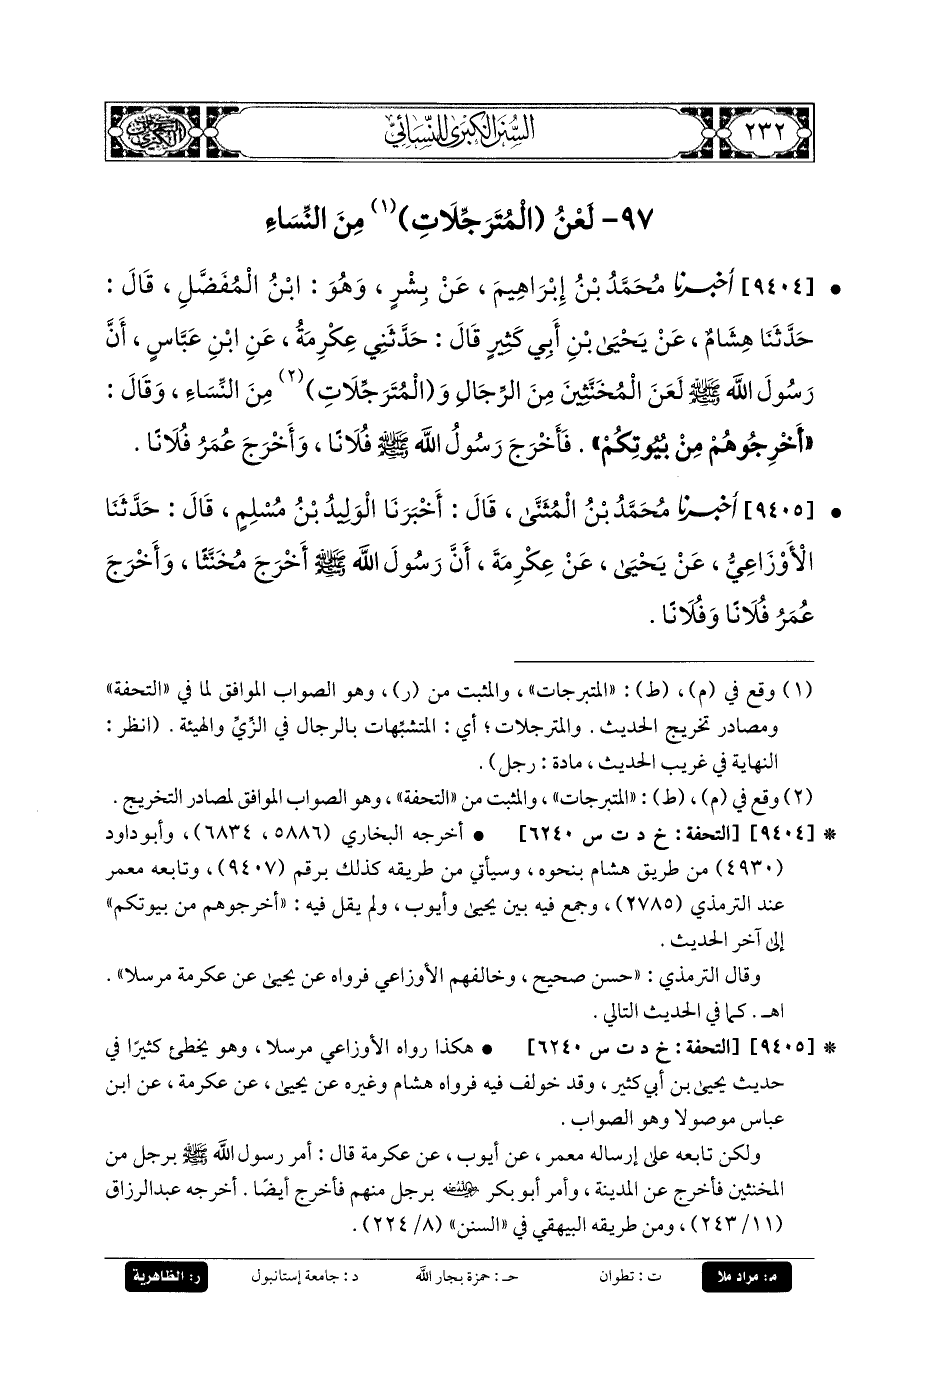 ٢٣٢
السنن الكبرى للنسائي
٩٧- لَعْنُ (الْمُتَرَجِّلَاتِ)(١) مِنَ النِّسَاءِ
• [٩٤٠٤] أخبرنا مُحَمَّدُ بْنُ إِبْرَاهِيمَ، عَنْ بِشْرٍ، وَهُوَ: ابْنُ الْمُفَضَّلِ، قَالَ:
حَدَّثَنَا هِشَامٌ، عَنْ يَحْيَىٰ بْنِ أَبِي كَثِيرٍ قَالَ: حَدَّثَنِي عِكْرِمَةُ، عَنِ ابْنِ عَبَّاسٍ، أَنَّ
رَسُولَ اللَّه ﷺ لَعَنَ الْمُخَنَّثِينَ مِنَ الرِّجَالِ وَ(الْمُتَرَجِّلَاتِ)(٢) مِنَ النِّسَاءِ، وَقَالَ:
«أَخْرِجُوهُمْ مِنْ بُيُوتِكُمْ». فَأَخْرَجَ رَسُولُ اللَّه ﷺ فُلَانًا، وَأَخْرَجَ عُمَرُ فُلَانًا.
• [٩٤٠٥] أخبرنا مُحَمَّدُ بْنُ الْمُثَنَّىٰ، قَالَ: أَخْبَرَنَا الْوَلِيدُ بْنُ مُسْلِمٍ، قَالَ: حَدَّثَنَا
الْأَوْزَاعِيُّ، عَنْ يَحْيَىٰ، عَنْ عِكْرِمَةَ، أَنَّ رَسُولَ اللَّه ﷺ أَخْرَجَ مُخَنَّثًا، وَأَخْرَجَ
عُمَرُ فُلَانًا وَفُلَانًا.
(١) وقع في (م)، (ط): «المتبرجات»، والمثبت من (ر)، وهو الصواب الموافق لما في «التحفة»
ومصادر تخريج الحديث. والمترجلات؛ أي: المتشبِّهات بالرجال في الزِّيِّ والهيئة. (انظر:
النهاية في غريب الحديث، مادة: رجل).
(٢) وقع في (م)، (ط): «المتبرجات»، والمثبت من «التحفة»، وهو الصواب الموافق لمصادر التخريج.
* [٩٤٠٤] [التحفة: خ د ت س ٦٢٤٠] • أخرجه البخاري (٥٨٨٦، ٦٨٣٤)، وأبو داود
(٤٩٣٠) من طريق هشام بنحوه، وسيأتي من طريقه كذلك برقم (٩٤٠٧)، وتابعه معمر
عند الترمذي (٢٧٨٥)، وجمع فيه بين يحيىٰ وأيوب، ولم يقل فيه: «أخرجوهم من بيوتكم»
إلى آخر الحديث.
وقال الترمذي: «حسن صحيح، وخالفهم الأوزاعي فرواه عن يحيىٰ عن عكرمة مرسلا».
اهـ. كما في الحديث التالي.
* [٩٤٠٥] [التحفة: خ د ت س ٦٢٤٠] • هكذا رواه الأوزاعي مرسلا، وهو يخطئ كثيرًا في
حديث يحيىٰ بن أبي كثير، وقد خولف فيه فرواه هشام وغيره عن يحيىٰ، عن عكرمة، عن ابن
عباس موصولا وهو الصواب.
ولكن تابعه على إرساله معمر، عن أيوب، عن عكرمة قال: أمر رسول اللَّه ﷺ برجل من
المخنثين فأخرج عن المدينة، وأمر أبو بكر رضي الله عنه برجل منهم فأخرج أيضًا. أخرجه عبدالرزاق
(١١/ ٢٤٣)، ومن طريقه البيهقي في «السنن» (٨/ ٢٢٤).
م: مراد ملا ت: تطوان حـ: حمزة بجار اللَّه د: جامعة إستانبول ر: الظاهرية